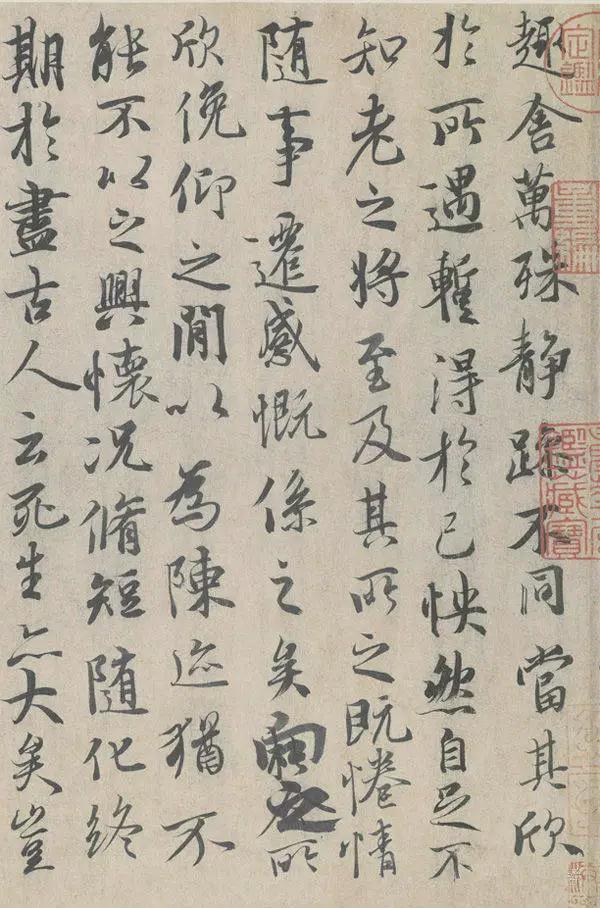 趣舍萬殊静躁不同當其欣
於所遇蹔得於己怏然自足不
知老之將至及其所之既惓情
隨事遷感慨係之矣向之所
欣俛仰之閒以為陳迹猶不
能不以之興懷况脩短随化終
期於盡古人云死生亦大矣豈